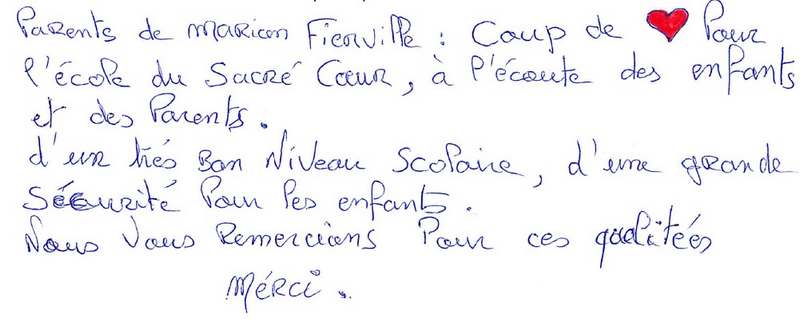 Parents de Marion Fierville : Coup de ❤ Pour
l'école du Sacré Cœur, à l'écoute des enfants
et des Parents.
d'un très Bon Niveau Scolaire, d'une grande
Sécurité Pour les enfants.
Nous Vous Remercions Pour ces qualitées
Mérci.